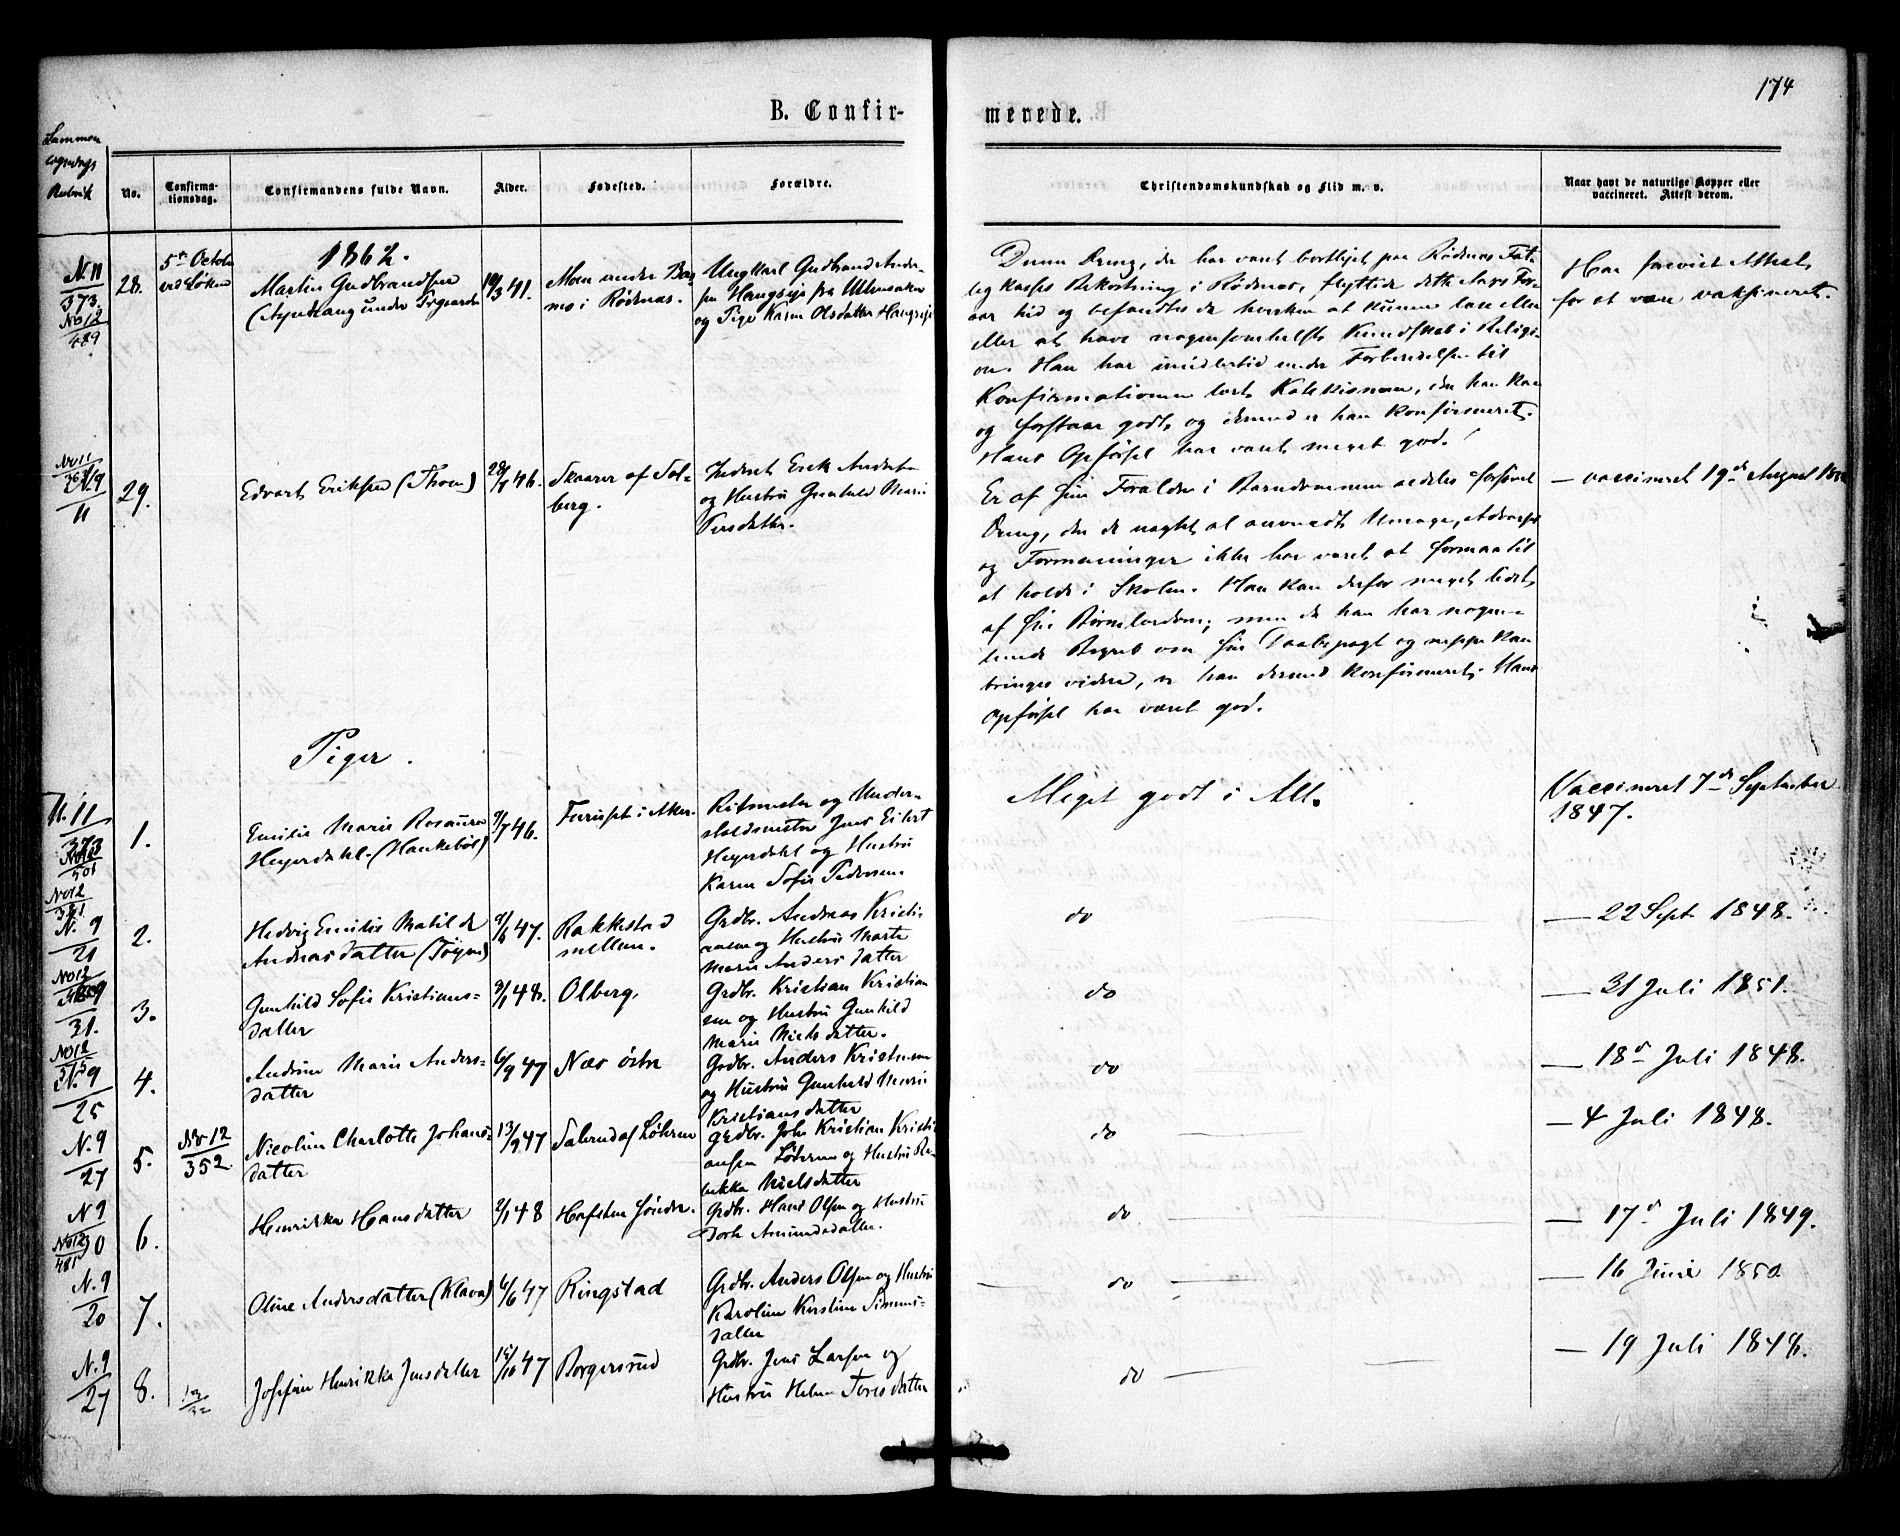 174
B. Confir-
merede.
Sammen
Rubrik
No.
Confirma-
tionsdag.
Confirmandens fulde Navn.
Alder.
Fødested.
Forældre.
Christendomskundskab og Flid m. v.
Naar havt de naturlige Kopper eller
vaccineret. Attest derom.
1862.
N. 11
373.
No 12
28.
5te Octobr
ved Løken
Martin Gudbrandsen
19/3 41.
Moen under Bø-
mo i Rødnæs.
Ungkarl Gudbrand Ander-
sen Haugseje fra Ullensaker
og Pige Karen Olsdatter Haugseje
Denne Dreng, der har været bortlejet paa Rødnæs Fat-
tigkasses Bekostning i Rødnæs, flyttede dette Aars For-
aar hid og befandtes da hverken at kunne læse eller
eller at have nogensomhelst Kundskab i Religi-
on. Han har imidlertid under Forberedelsen til
Konfirmationen lært Katekismen, den han kan
og forstaar godt, og dermed er han konfirmeret.
Hans Opførsel har været meget god.
Har forevist Attest
for at være vaksineret.
No 11
N. 9
11
29.
Edvart Eriksen (Thoen)
46.
Skaarer af Sol-
berg.
Inderst Erik Anders
og Hustru Gunhild Marie
Persdatter.
Er af sine Forældre i Barndommen aldeles forsømt
Dreng, der de nagtet al anvendt Umage,
og Formaninger ikke har været at formaa til
at holde i Skolen. Han kan derfor meget lidet
af sin Børnelærdom; men da han har nogen-
lunde Begreb om sin Daabspagt og neppe kan
bringes videre, er han dermed konfirmeret. Hans
Opførsel har været god.
— vaccineret 19de August
Piger.
N. 11
373
No 12
501
1.
Emilie Marie Rosaura
Heyerdahl (Haukebøl)
9/7 46.
Furuset i Aker.
Ritmester og Under-
holdsmster Jens Eilert
Heyerdahl og Hustru
Karen Sofie Pedersen.
Meget godt i Alt.
Vaccineret 7de September
1847.
No 12
N. 9
21
2.
Hedvig Emilie Matilde
Andreasdatter (Tøyen)
47.
Rakkestad
mellem.
Grdbr. Andreas Kristi-
ansen og Hustru Marte
Marie Andersdatter
do
— 22 Sept 1848.
No 12
31.
3.
Gunhild Sofie Kristians-
datter
9/1 48.
Olberg.
Grdbr. Kristian Kristian
sen og Hustru Gunhild
Marie Nielsdatter.
do
— 31 Juli 1851.
No 12
N. 9
25
4.
Andrine Marie Anders-
datter
6/9 47
Næs østre
Grdbr. Anders Kristensen
og Hustru Gunhild Marie
Kristiansdatter
do
— 18de Juli 1848.
N. 9
27
5.
No 12
352.
Nicoline Charlotte Johans-
datter
13/9 47
Grdbr. John Kristian Kristi-
ansen Løkeren og Hustru Re-
bekka Nielsdatter
do
— 4 Juli 1848.
N 9
No 12
481
6.
Henrikka Hansdatter
2/1 48
Hafsten søndre.
Grdbr. Hans Olsen og Hustru
Dorte Amundsdatter.
do
— 17de Juli 1849.
N. 9
20
7.
Oline Andersdatter (Klava)
6/6 47
Ringstad
Grdbr. Anders Olsen og Hustru
Karoline Kerstine Simens-
datter
do
— 16 Juni 1850
N. 9
27
8.
Josefine Henrikke Jensdatter
15/10 47
Borgersrud
Grdbr. Jens Larsen og
Hustru Helene Toresdatter
do
— 19 Juli 1848.